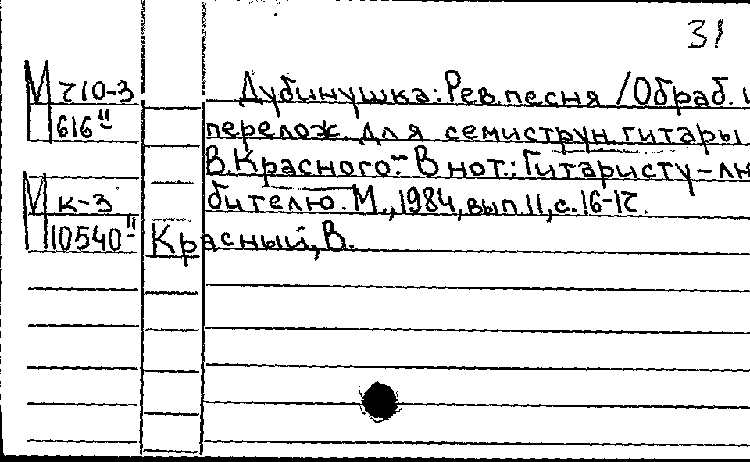 31
М 710-3
П 616"
Дубинушка: Рев. песня / Обраб. и
перелож. для семиструн. гитары
В. Красного.- В нот.: Гитаристу-лю
бителю. М., 1984, вып. 11, с. 16-17.
М К-3
П 10540"
Красный, В.